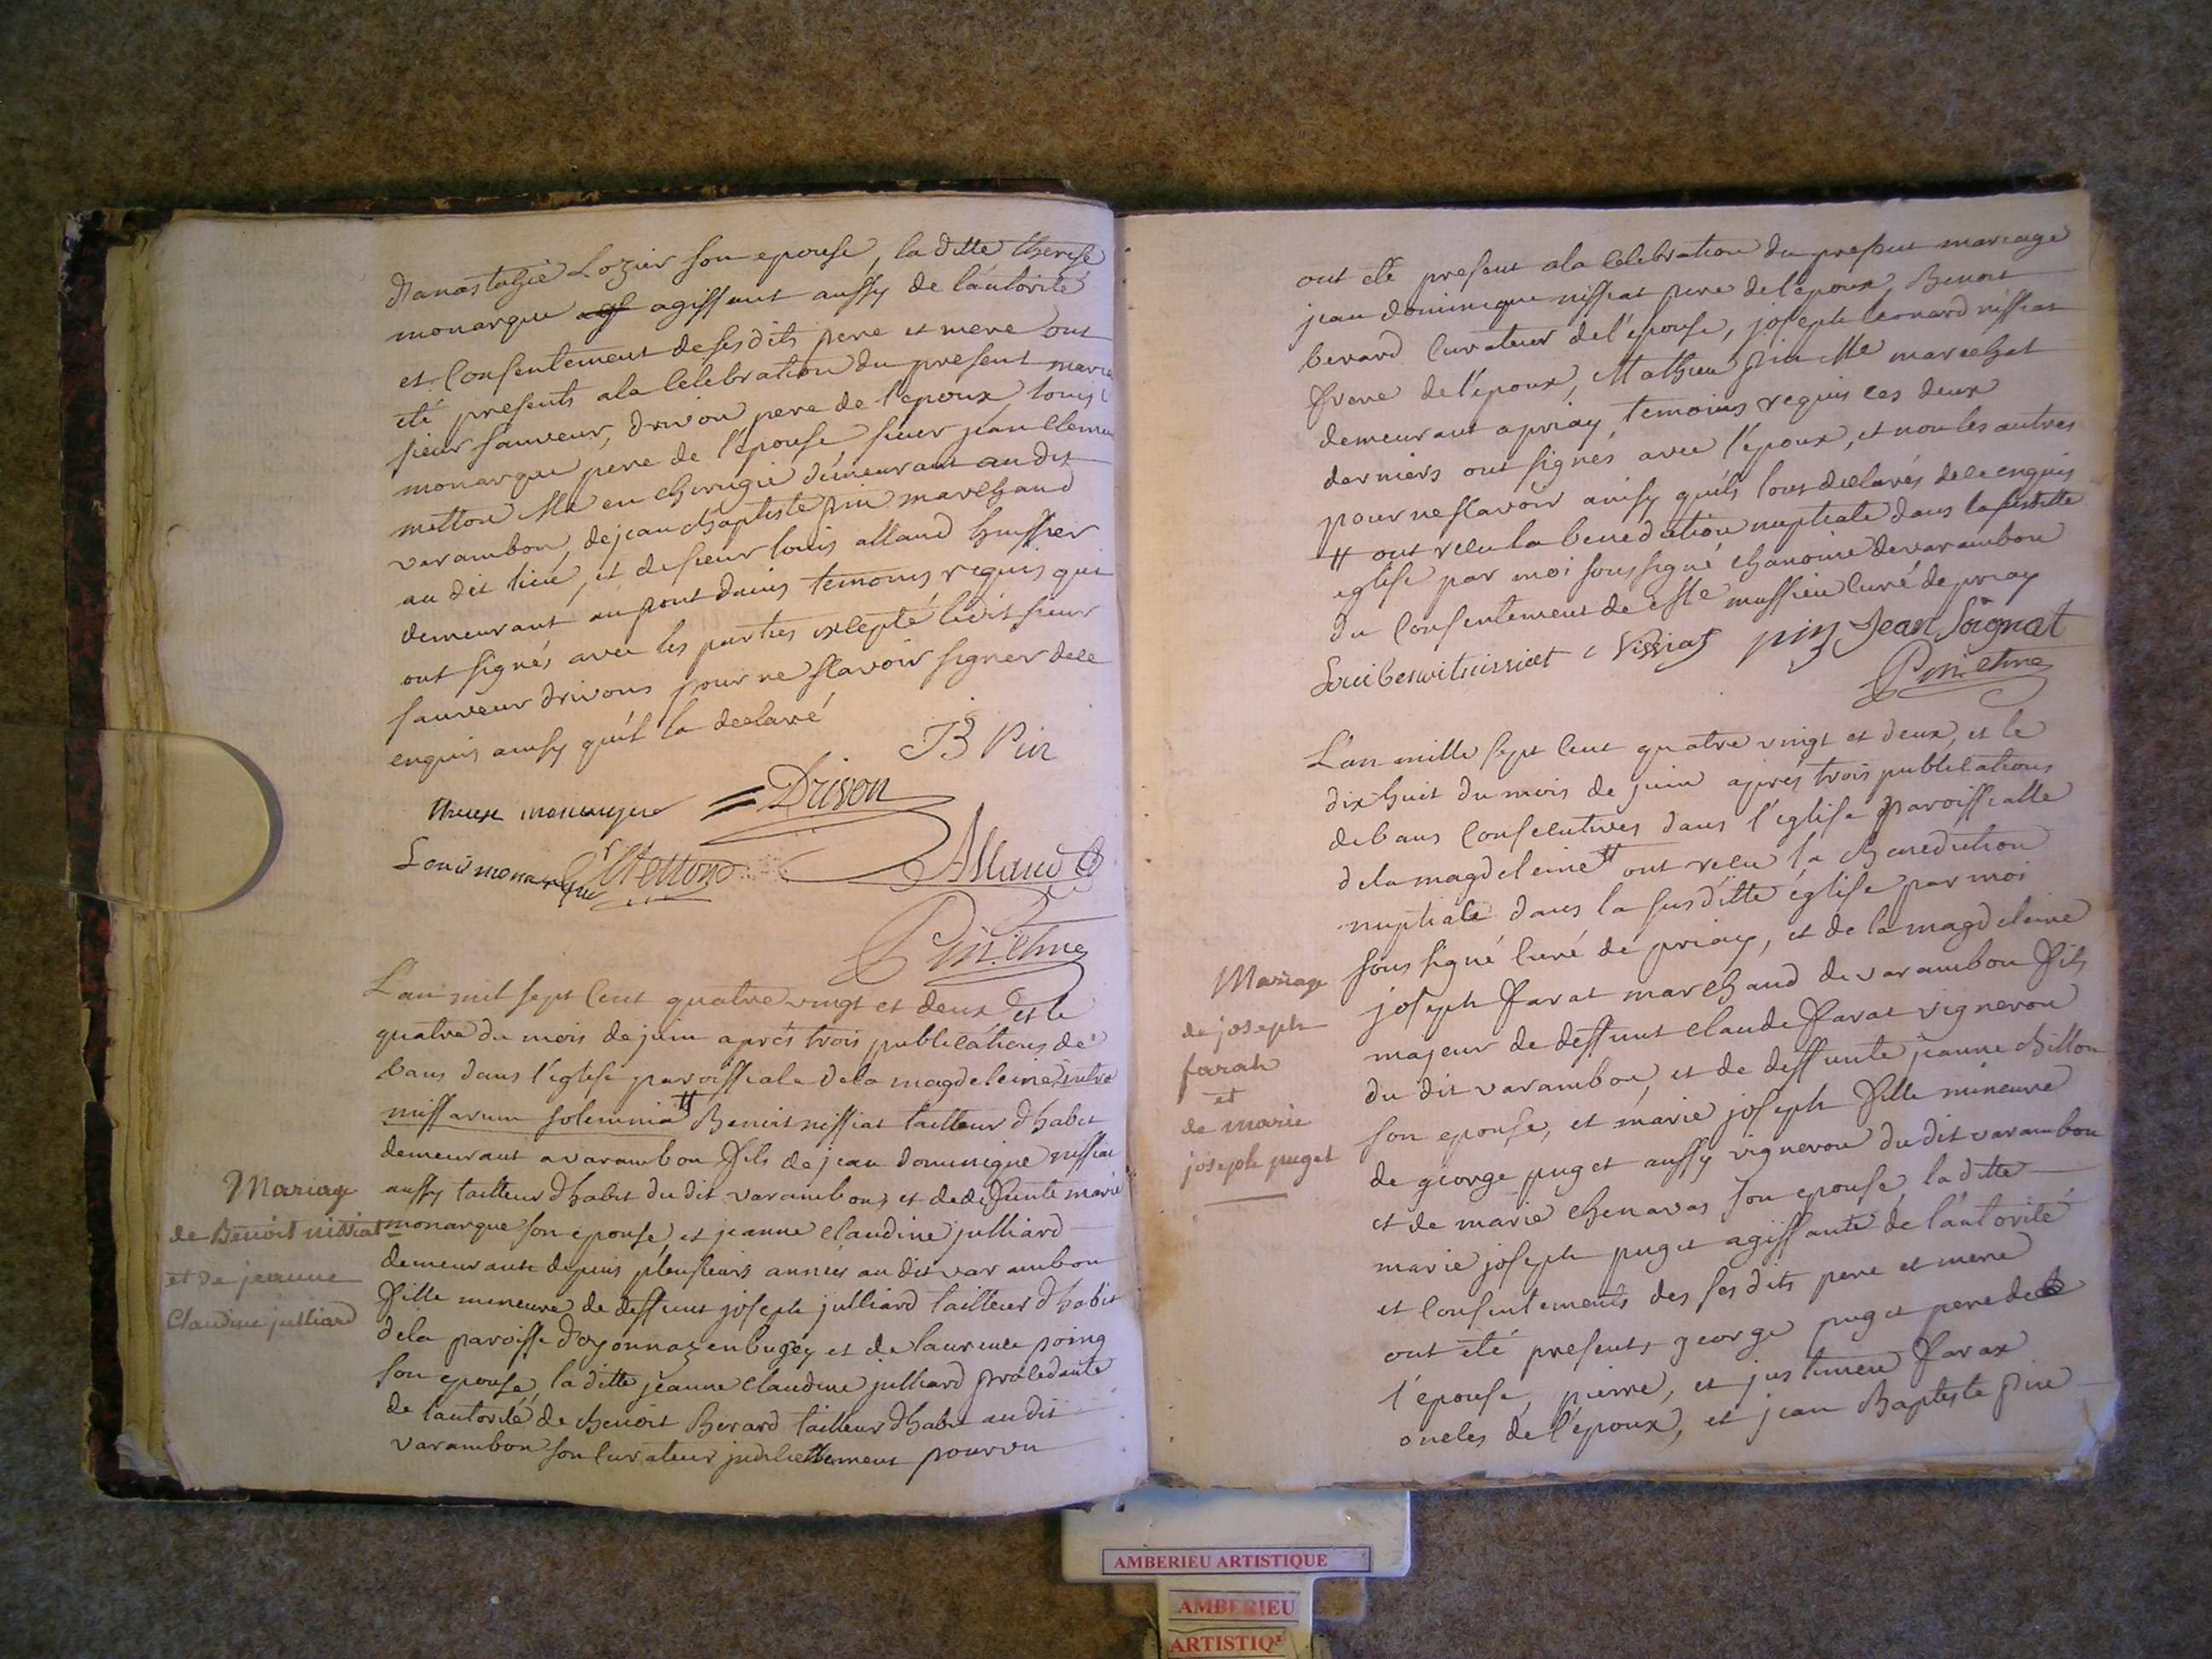 d'anastazie Lozier son epouse, la ditte therese
monarque agissant aussy de l'autorité
et consentement de ses dits pere et mere ont
été presents a la celebration du present
sieur sauveur, drivon pere de l'epoux, louis
monarque pere de l'épouse sieur jean
metton Me en chirugie demeurant au dit
varambon, de jean Baptiste pin marchand
au dit lieu, et de sieur louis allaud huissier
demeurant au pont dains temoins requis qui
ont signés avec les parties excepté ledit sieur
sauveur drivons pour ne scavoir signer de ce
enquis ainsy qu'il la declaré
JB Pin
therese monarque Drivon
Louis monarque Metton Allaud
Pin. chne
L'an mil sept cent quatre vingt et deux et le
quatre du mois de juin aprés trois publications de
bans dans l'eglise paroissiale de la magdeleine intra
missarum solemnia # Benoit nissiat tailleur d'habit
demeurant a varambon fils de jean dominique nissiat
Mariage
aussy tailleur d'habit du dit varambon, et de defunte marie
de Benoit nissiat
monarque son epouse, et jeanne claudine julliard
et de jeanne
demeurante depuis pleusieurs années au dit varambon
Claudine julliard
fille mineure de deffunt joseph julliard tailleur d'habit
de la paroisse d'oyonnaz en bugey et de laurence poing
son epouse, la ditte jeanne claudine julliard procedante
de l'autorité de Benoit Berard tailleur d'habit au dit
varambon son curateur judiciellement pourvu
ont été present a la celebration du present mariage
jean dominique nissiat pere de l'epoux, Benoit
berard curateur de l'épouse, joseph leonard nissiat
frere de l'époux, Mathieu pin Me marechal
demeurant a priay, temoins requis ces deux
derniers ont signés avec l'époux, et non les autres
pour ne scavoir ainsy qu'ils l'ont declarés de ce enquis
# ont recu la benediction nuptiale dans la susditte
eglise par moi soussigné chanoine de varambon
du consentement de Me mussieu curé de priay
nissiat pin Jean Soignat
Pin. chne
L'an mille sept cent quatre vingt et deux, et le
dix huit du mois de juin aprés trois publications
de bans consecutives dans l'eglise paroissialle
de la magdeleine # ont recu la Benediction
nuptiale dans la susditte église par moi
soussigné curé de priay, et de la magdeleine
Mariage
joseph farat marchand de varambon fils
de joseph
majeur de deffunt claude farat vigneron
farah
du dit varambon, et de deffunte jeanne chillon
et
de marie
son epouse, et marie joseph fille mineure
joseph puget
de george puget aussy vigneron du dit varambon
et de marie chenavas son epouse, la ditte
marie joseph puget agissante de l'autorité
et consentements des ses dits pere et mere
ont été presents george puget pere de
l'epouse, pierre, et farax
oncles de l'époux, et jean Baptiste pin
AMBERIEU ARTISTIQUE
AMBERIEU
ARTISTIQ